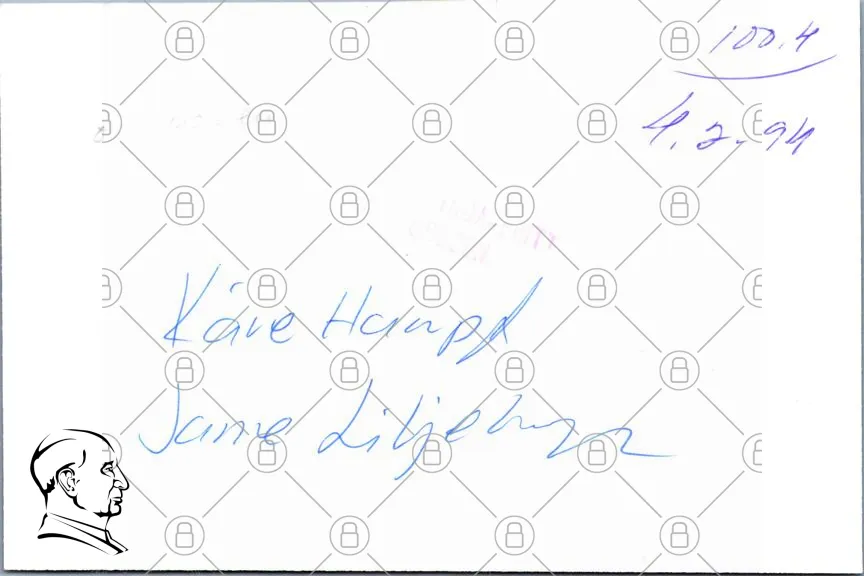 100.4
4.2.94
Kåre Hampf
Janne Liljeberg